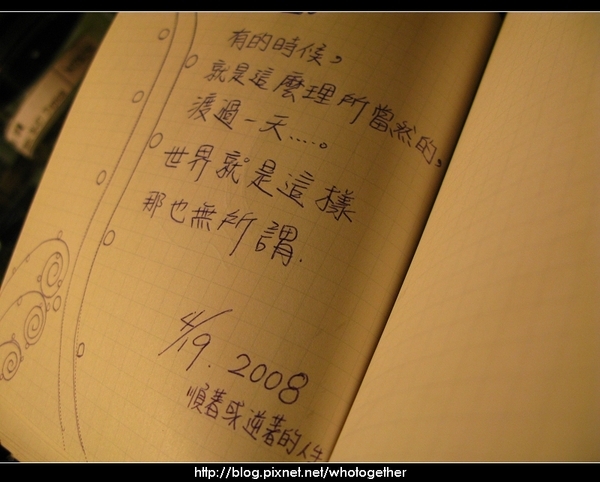 有的時候，
就是這麼理所當然的，
渡過一天.....。
世界就是這樣
那也無所謂.
4/19. 2008
順著或逆著的人生
http://blog.pixnet.net/whotogether